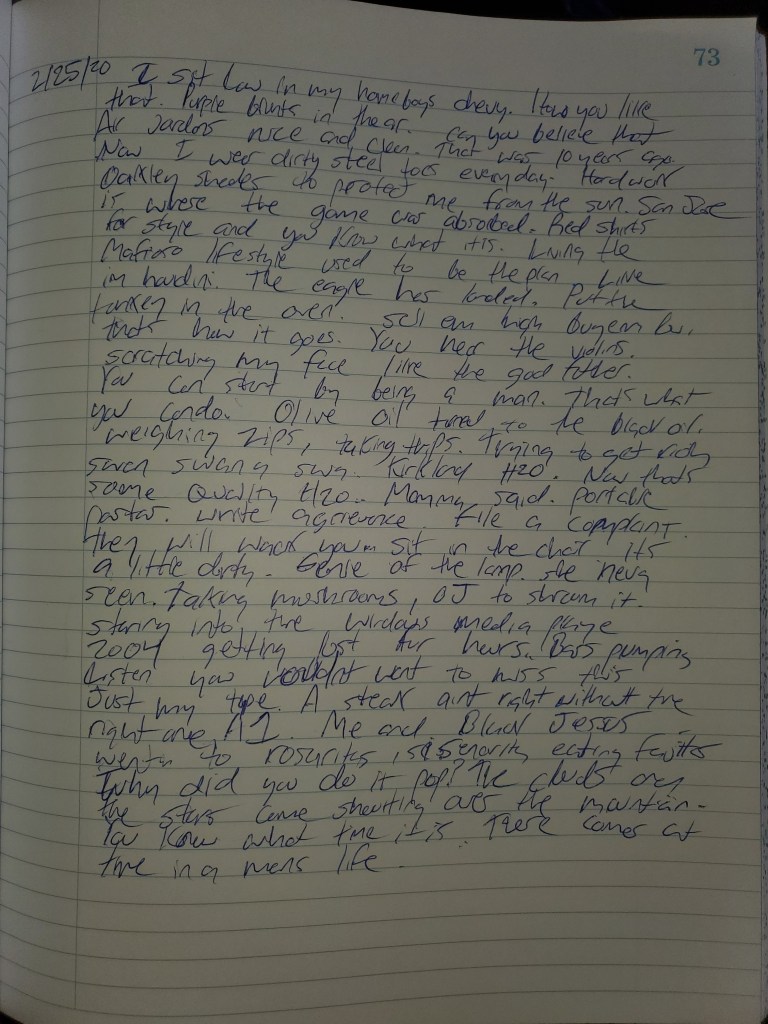 73
2/25/20 I sit low in my homeboys chevy. Hows you like
that. Purple blunts in the air. Can you believe that
Air Jardons nice and clean. That was 10 years ago.
Now I wear dirty steel toes everyday. Hard work
Oakley shades to protect me from the sun. San Jose
is where the game was absorbed. Red shirts
for style and you know what it is. Living the
Mafioso lifestyle used to be the plan Live
im houdini. The eagle has landed. Put the
turkey in the oven. Sell em high buy em low.
thats how it goes. You hear the violins.
scratching my face like the god father.
You can start by being a man. Thats what
you can do. Olive oil turned to the black oil.
weighing zips, taking trips. Trying to get rich
swang swa. Kirkland H20. Now thats
some Quality H20. Momma said.
pastor. write a grievence. File a complaint.
they will wack you. Sit in the chat its
a little dirty. Genie of the lamp. she neva
seen. taking mushrooms, OJ to it.
staring into the windows media playe
2004 getting lost for hours. Bass pumping
Listen you wouldnt want to miss this
Just my type. A steak aint right without the
right one A1. Me and Black Jesus
went to rosuritas, senority eating
Why did you do it pop? The clouds
the stars come shewting over the mountain.
You know what time it is. There comes at
time in a mens life.